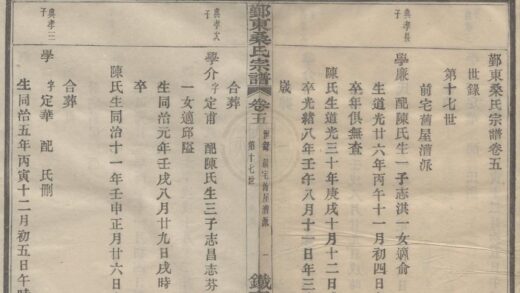 鄞東桑氏宗譜卷五
世錄
第十七世
前宅舊屋漕派
孝長子
學廉 配陳氏生一子志淇一女適俞
生道光廿六年丙午十一月初四日
卒年俱無查
陳氏生道光三十年庚戌十月十二日
卒光緒八年壬午八月十一日年三
歲
鄞東桑氏宗譜 卷五 世錄 前宅舊屋漕派 一
第十七世
合葬
孝次子
學介 字定甫 配陳氏生三子志昌志芬
一女適邱隘
生同治元年壬戌八月廿九日戌時
卒
陳氏生同治十一年壬申正月廿六日
合葬
孝三子
學 字定華 配 氏刪
生同治五年丙寅十二月初五日午時